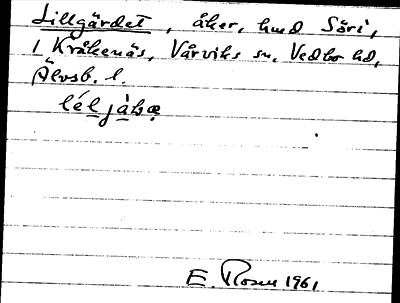 Lillgärdet, åker, hmd Söri,
1 Kråkenäs, Vårviks sn, Vedbo hd,
Älvsb. l.
E. Rosen 1961